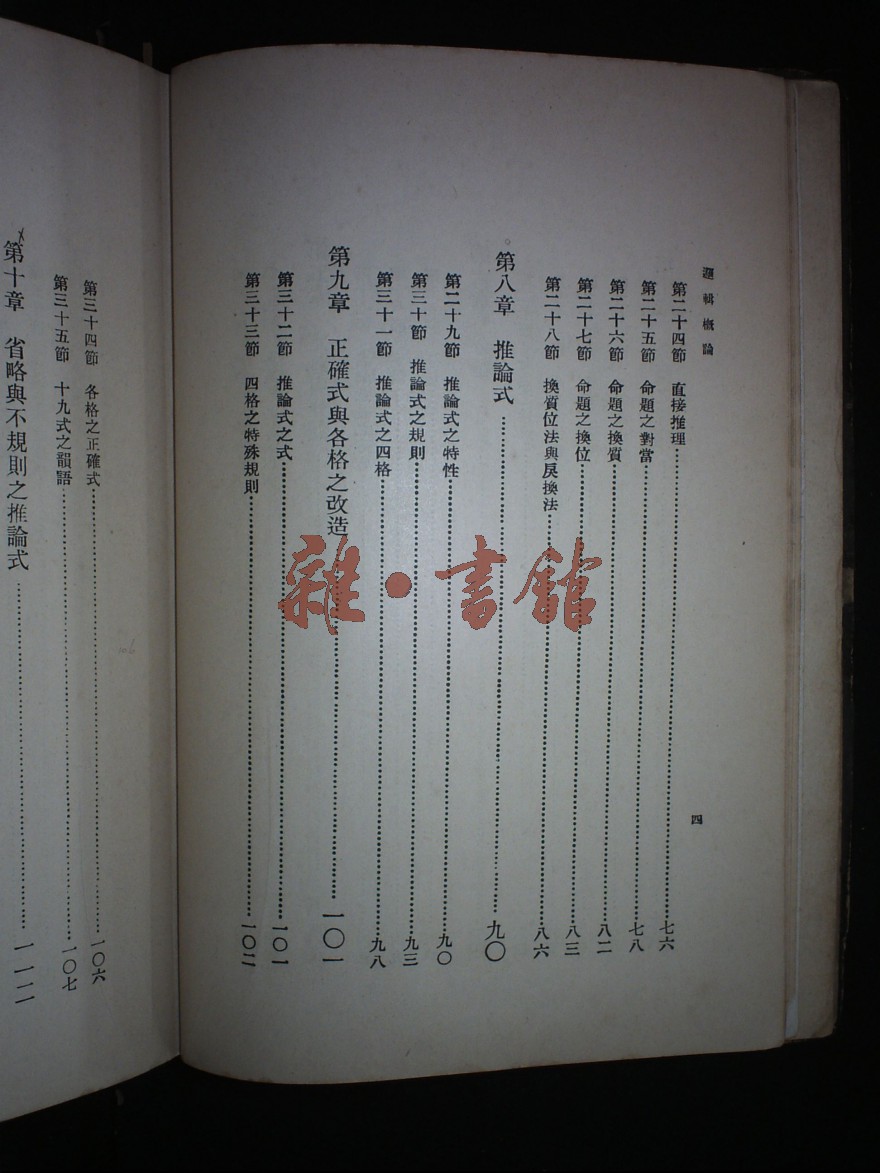 邏輯概論
四
第二十四節　直接推理……七六
第二十五節　命題之對當……七八
第二十六節　命題之換質……八二
第二十七節　命題之換位……八三
第二十八節　換質位法與戾換法……八六
第八章　推論式……九〇
第二十九節　推論式之特性……九〇
第三十節　推論式之規則……九三
第三十一節　推論式之四格……九八
第九章　正確式與各格之改造……一〇一
第三十二節　推論式之式……一〇一
第三十三節　四格之特殊規則……一〇二
第三十四節　各格之正確式……一〇六
第三十五節　十九式之韻語……一〇七
第十章　省略與不規則之推論式……一一二
雜·書館